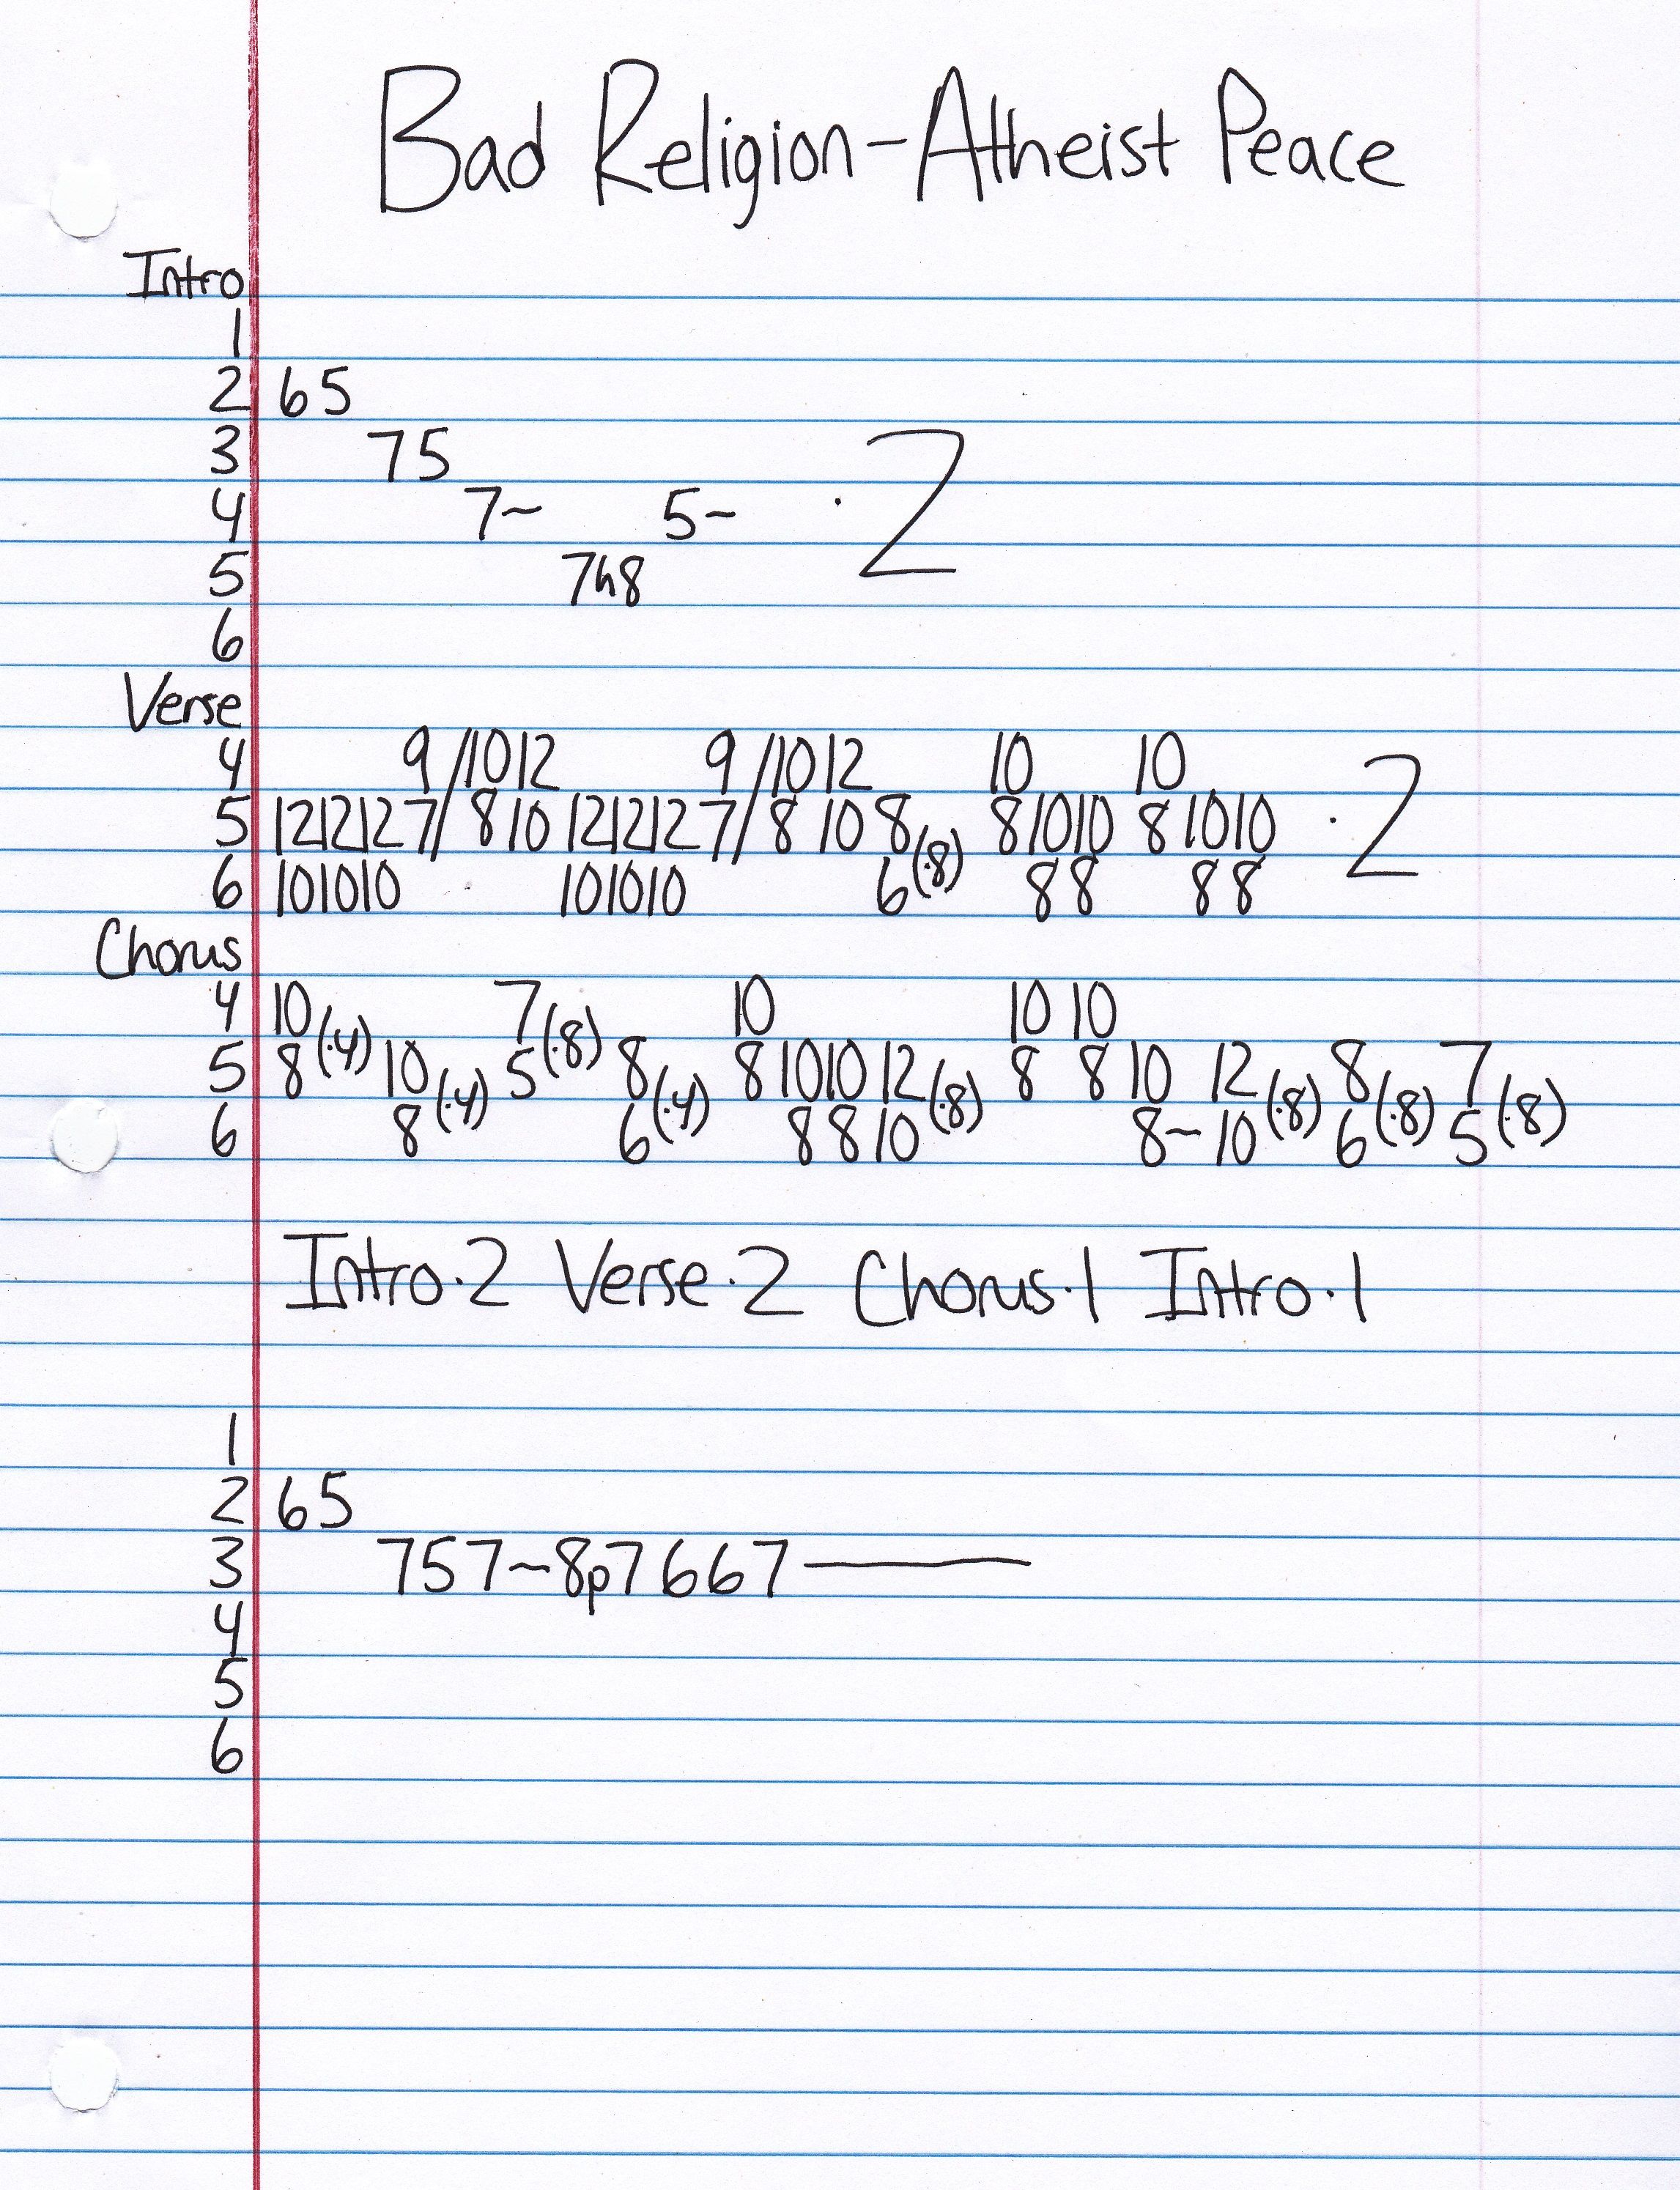 Bad Religion-Atheist Peace
Intro
1
2 65
3 75
4 7~ 5~ ·2
5 7h8
6
Verse
4 9/10 12 9/10 12 10 10
5 12 12 12 7/8 10 12 12 12 7/8 10 8 8 10 10 8 10 10 ·2
6 10 10 10 10 10 10 6(·8) 8 8 8 8
Chorus
4 10 7 10 10 10
5 8(·4) 10 5(·8) 8 8 10 10 12 8 8 10 12 8 7
6 8(·4) 6(·4) 8 8 10(·8) 8~10(·8) 6(·8) 5(·8)
Intro·2 Verse·2 Chorus·1 Intro·1
1
2 65
3 757~8p7667—
4
5
6